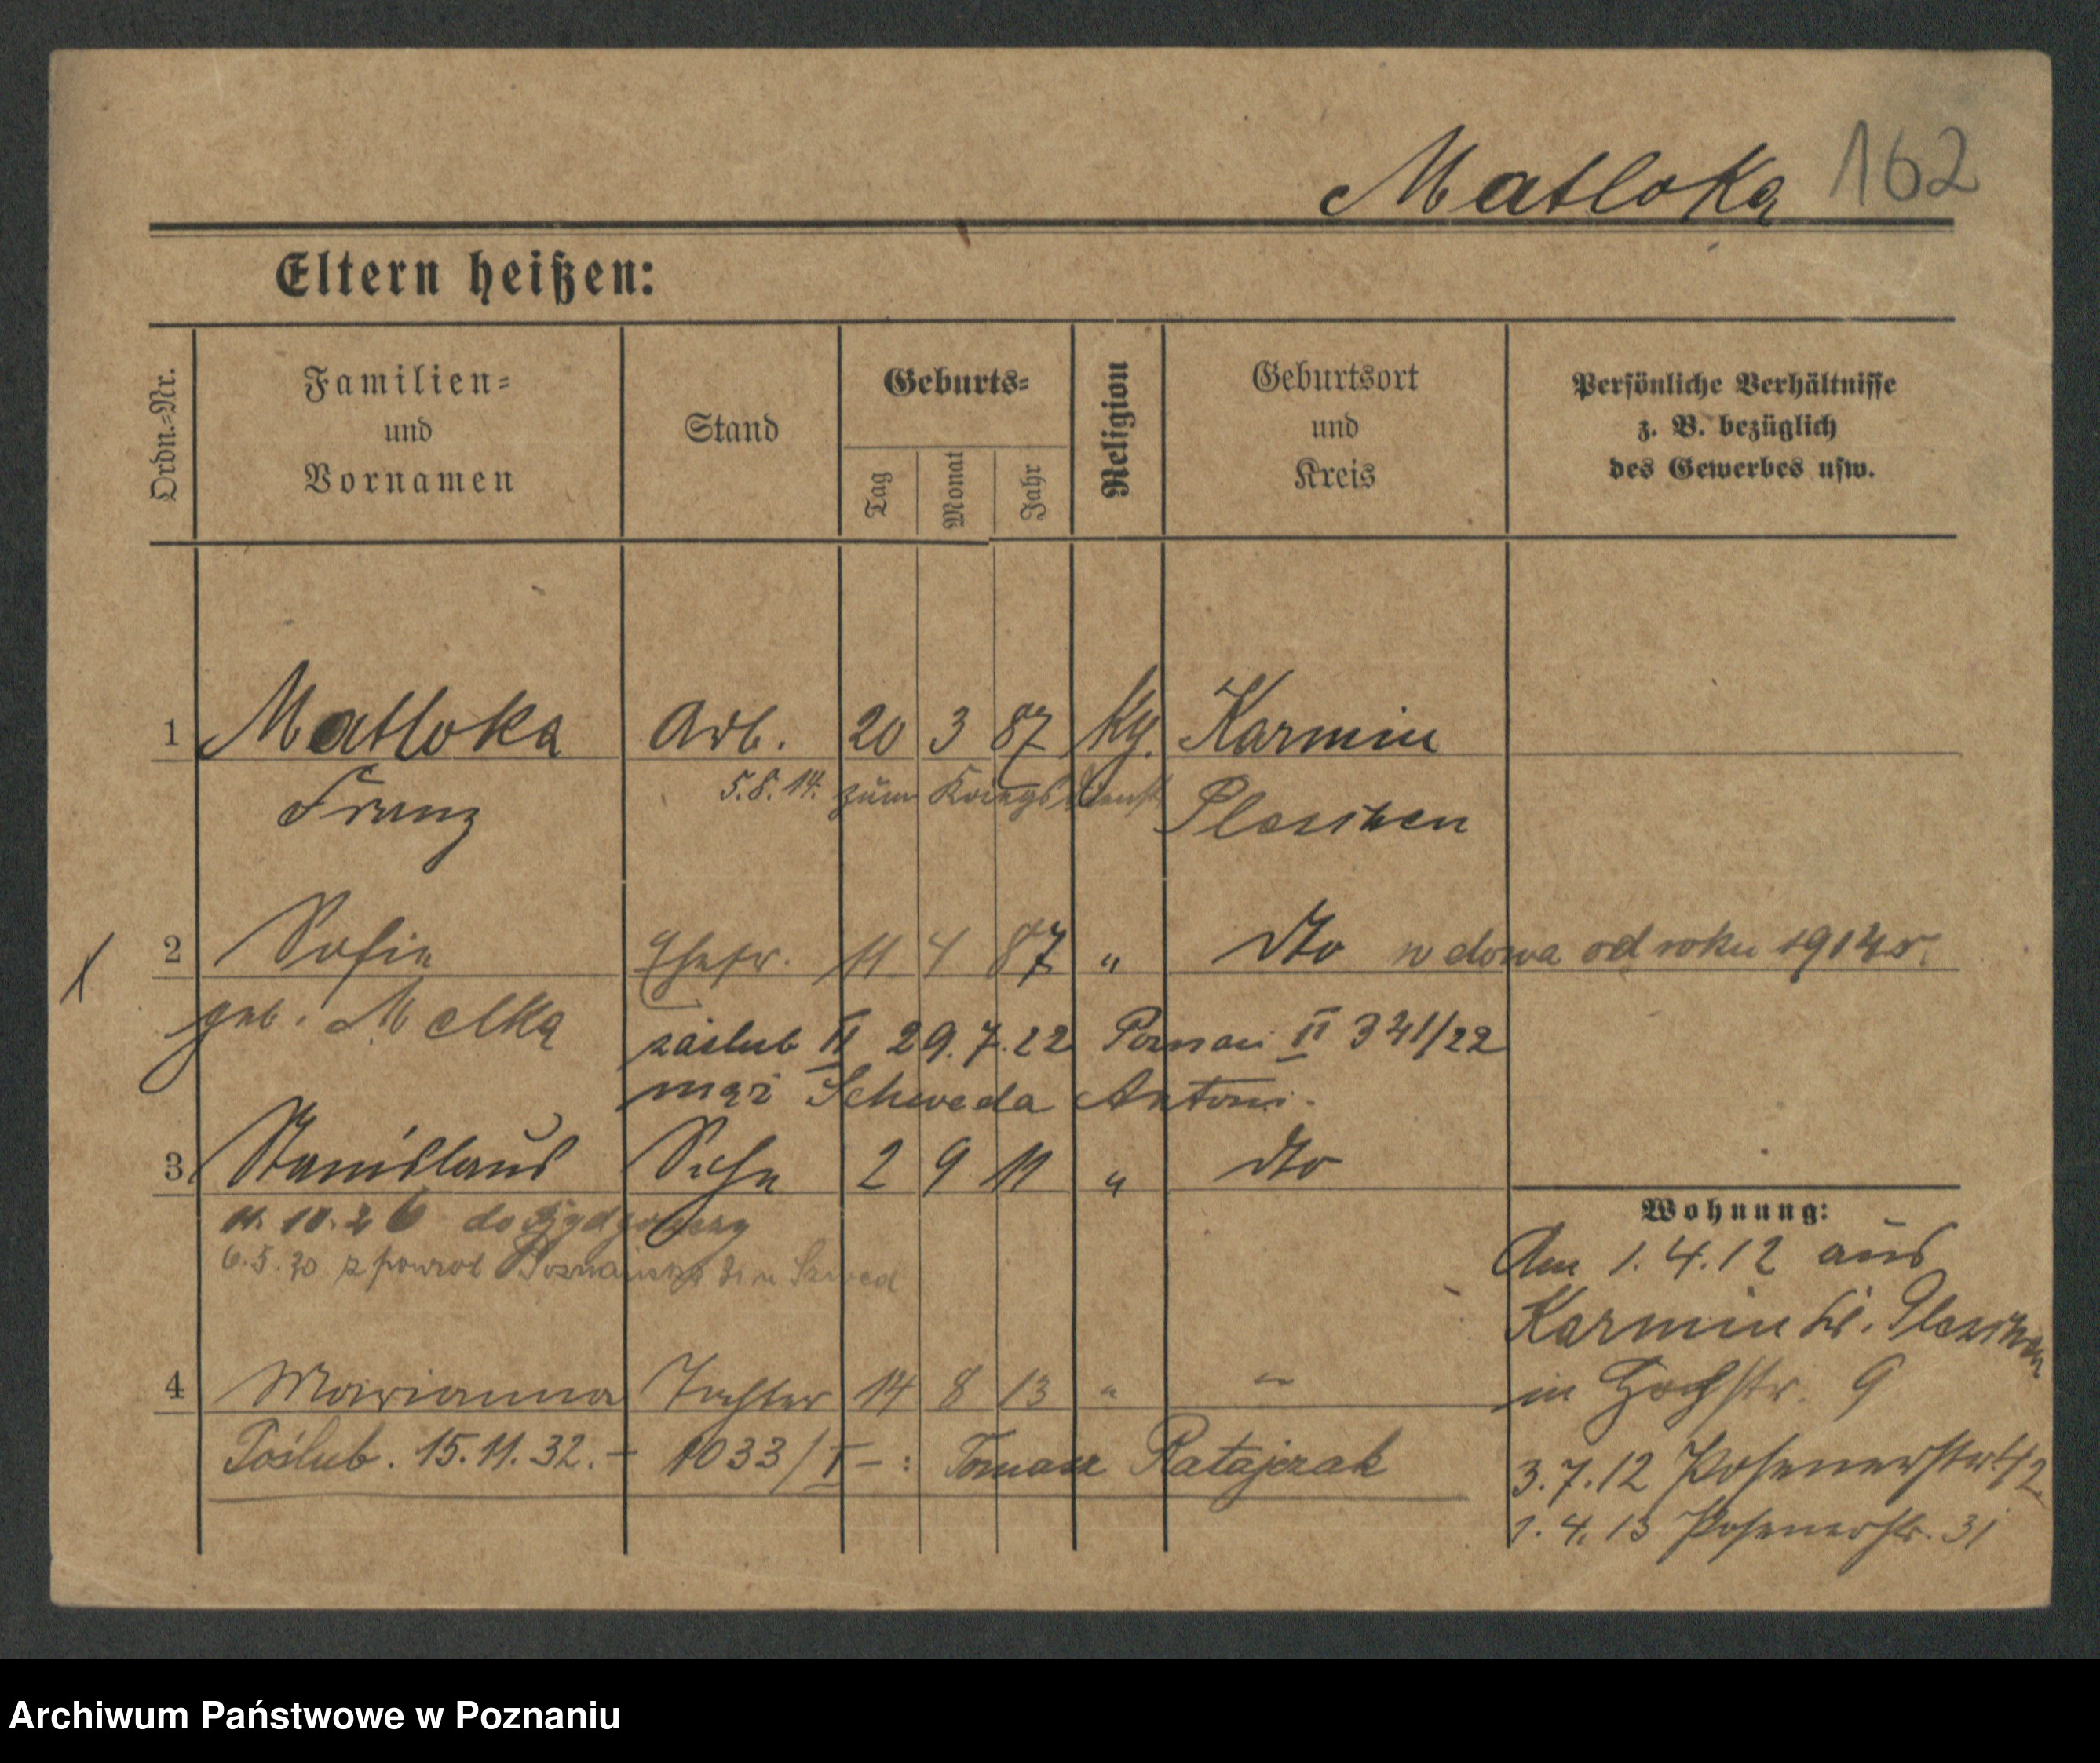 Matloka 162
Eltern heißen:
Ordn.-Nr.
Familien-
und
Vornamen
Stand
Geburts-
Tag
Monat
Jahr
Religion
Geburtsort
und
Kreis
Persönliche Verhältnisse
z. B. bezüglich
des Gewerbes usw.
1 Matloka Arb. 20 3 87 Kg. Karmin
Franz 5.8.14. zum Kriegsdienst Pleschen
2 Sofie Ehefr. 11 4 87 " dto wdowa od roku 1914 r.
geb. Melka zaślub II 29.7.22 Poznań II 341/22
mąż Schweda Antoni.
3 Stanislaus Sohn 2 9 11 " dto
11.10.26 do Bydgoszczy
6.5.30 z powrot Poznańska
4 Marianna Tochter 14 8 13 " "
Poślub. 15.11.32. - 1033/I - : Tomasz Ratajczak
Wohnung:
Am 1.4.12 aus
Karmin Kr. Pleschen
in Hochstr. 9
3.7.12 Posenerstr 42
1.4.13 Posenerstr. 31
Archiwum Państwowe w Poznaniu